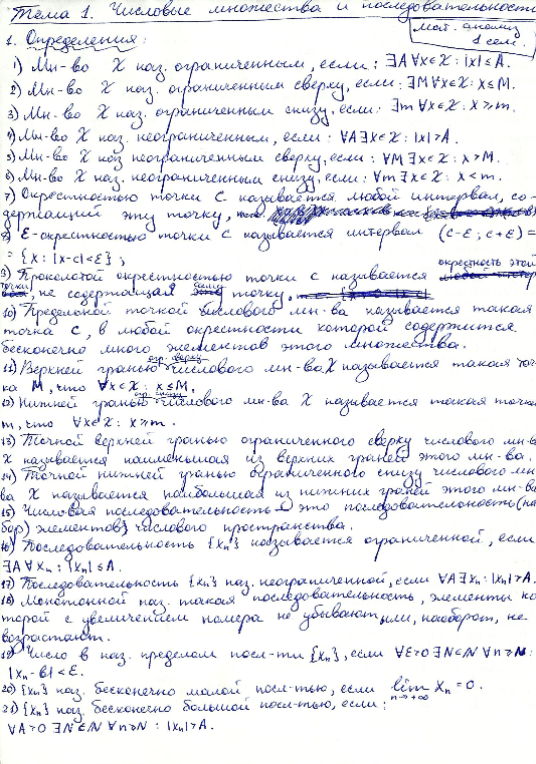 Тема 1. Числовые множества и последовательности
мат. анализ
1 сем.
1. Определения:
1) Мн-во X наз. ограниченным, если: ∃A ∀x∈X: |x|≤A.
2) Мн-во X наз. ограниченным сверху, если: ∃M ∀x∈X: x≤M.
3) Мн-во X наз. ограниченным снизу, если: ∃m ∀x∈X: x≥m.
4) Мн-во X наз. неограниченным, если: ∀A ∃x∈X: |x|>A.
5) Мн-во X наз неограниченным сверху, если: ∀M ∃x∈X: x>M.
6) Мн-во X наз. неограниченным снизу, если: ∀m ∃x∈X: x<m.
7) Окрестностью точки C называется любой интервал, со-
держащий эту точку,
8) ε-окрестностью точки C называется интервал (c-ε; c+ε)=
= {x: |x-c|<ε};
9) Проколотой окрестностью точки C называется окрестность этой
точки, не содержащая саму точку.
10) Предельной точкой числового мн-ва называется такая
точка C, в любой окрестности которой содержится
бесконечно много элементов этого множества.
11) Верхней гранью огр. сверху числового мн-ва X называется такая точ-
ка M, что ∀x∈X: x≤M.
12) Нижней гранью огр. снизу числового мн-ва X называется такая точка
m, что ∀x∈X: x≥m.
13) Точной верхней гранью ограниченного сверху числового мн-ва
X называется наименьшая из верхних граней этого мн-ва.
14) Точной нижней гранью ограниченного снизу числового мн-
ва X называется наибольшая из нижних граней этого мн-ва
15) Числовая последовательность - это последовательность (на
бор) элементов числового пространства.
16) Последовательность {xn} называется ограниченной, если
∃A ∀xn: |xn|≤A.
17) Последовательность {xn} наз. неограниченной, если ∀A ∃xn: |xn|>A.
18) Монотонной наз. такая последовательность, элементы ко
торой с увеличением номера не убывают, или, наоборот, не
возрастают.
19) Число b наз. пределом посл-ти {xn}, если ∀ε>0 ∃N∈N ∀n>N:
|xn-b|<ε.
20) {xn} наз. бесконечно малой посл-тью, если lim n→+∞ xn=0.
21) {xn} наз бесконечно большой посл-тью, если:
∀A>0 ∃N∈N ∀n>N: |xn|>A.